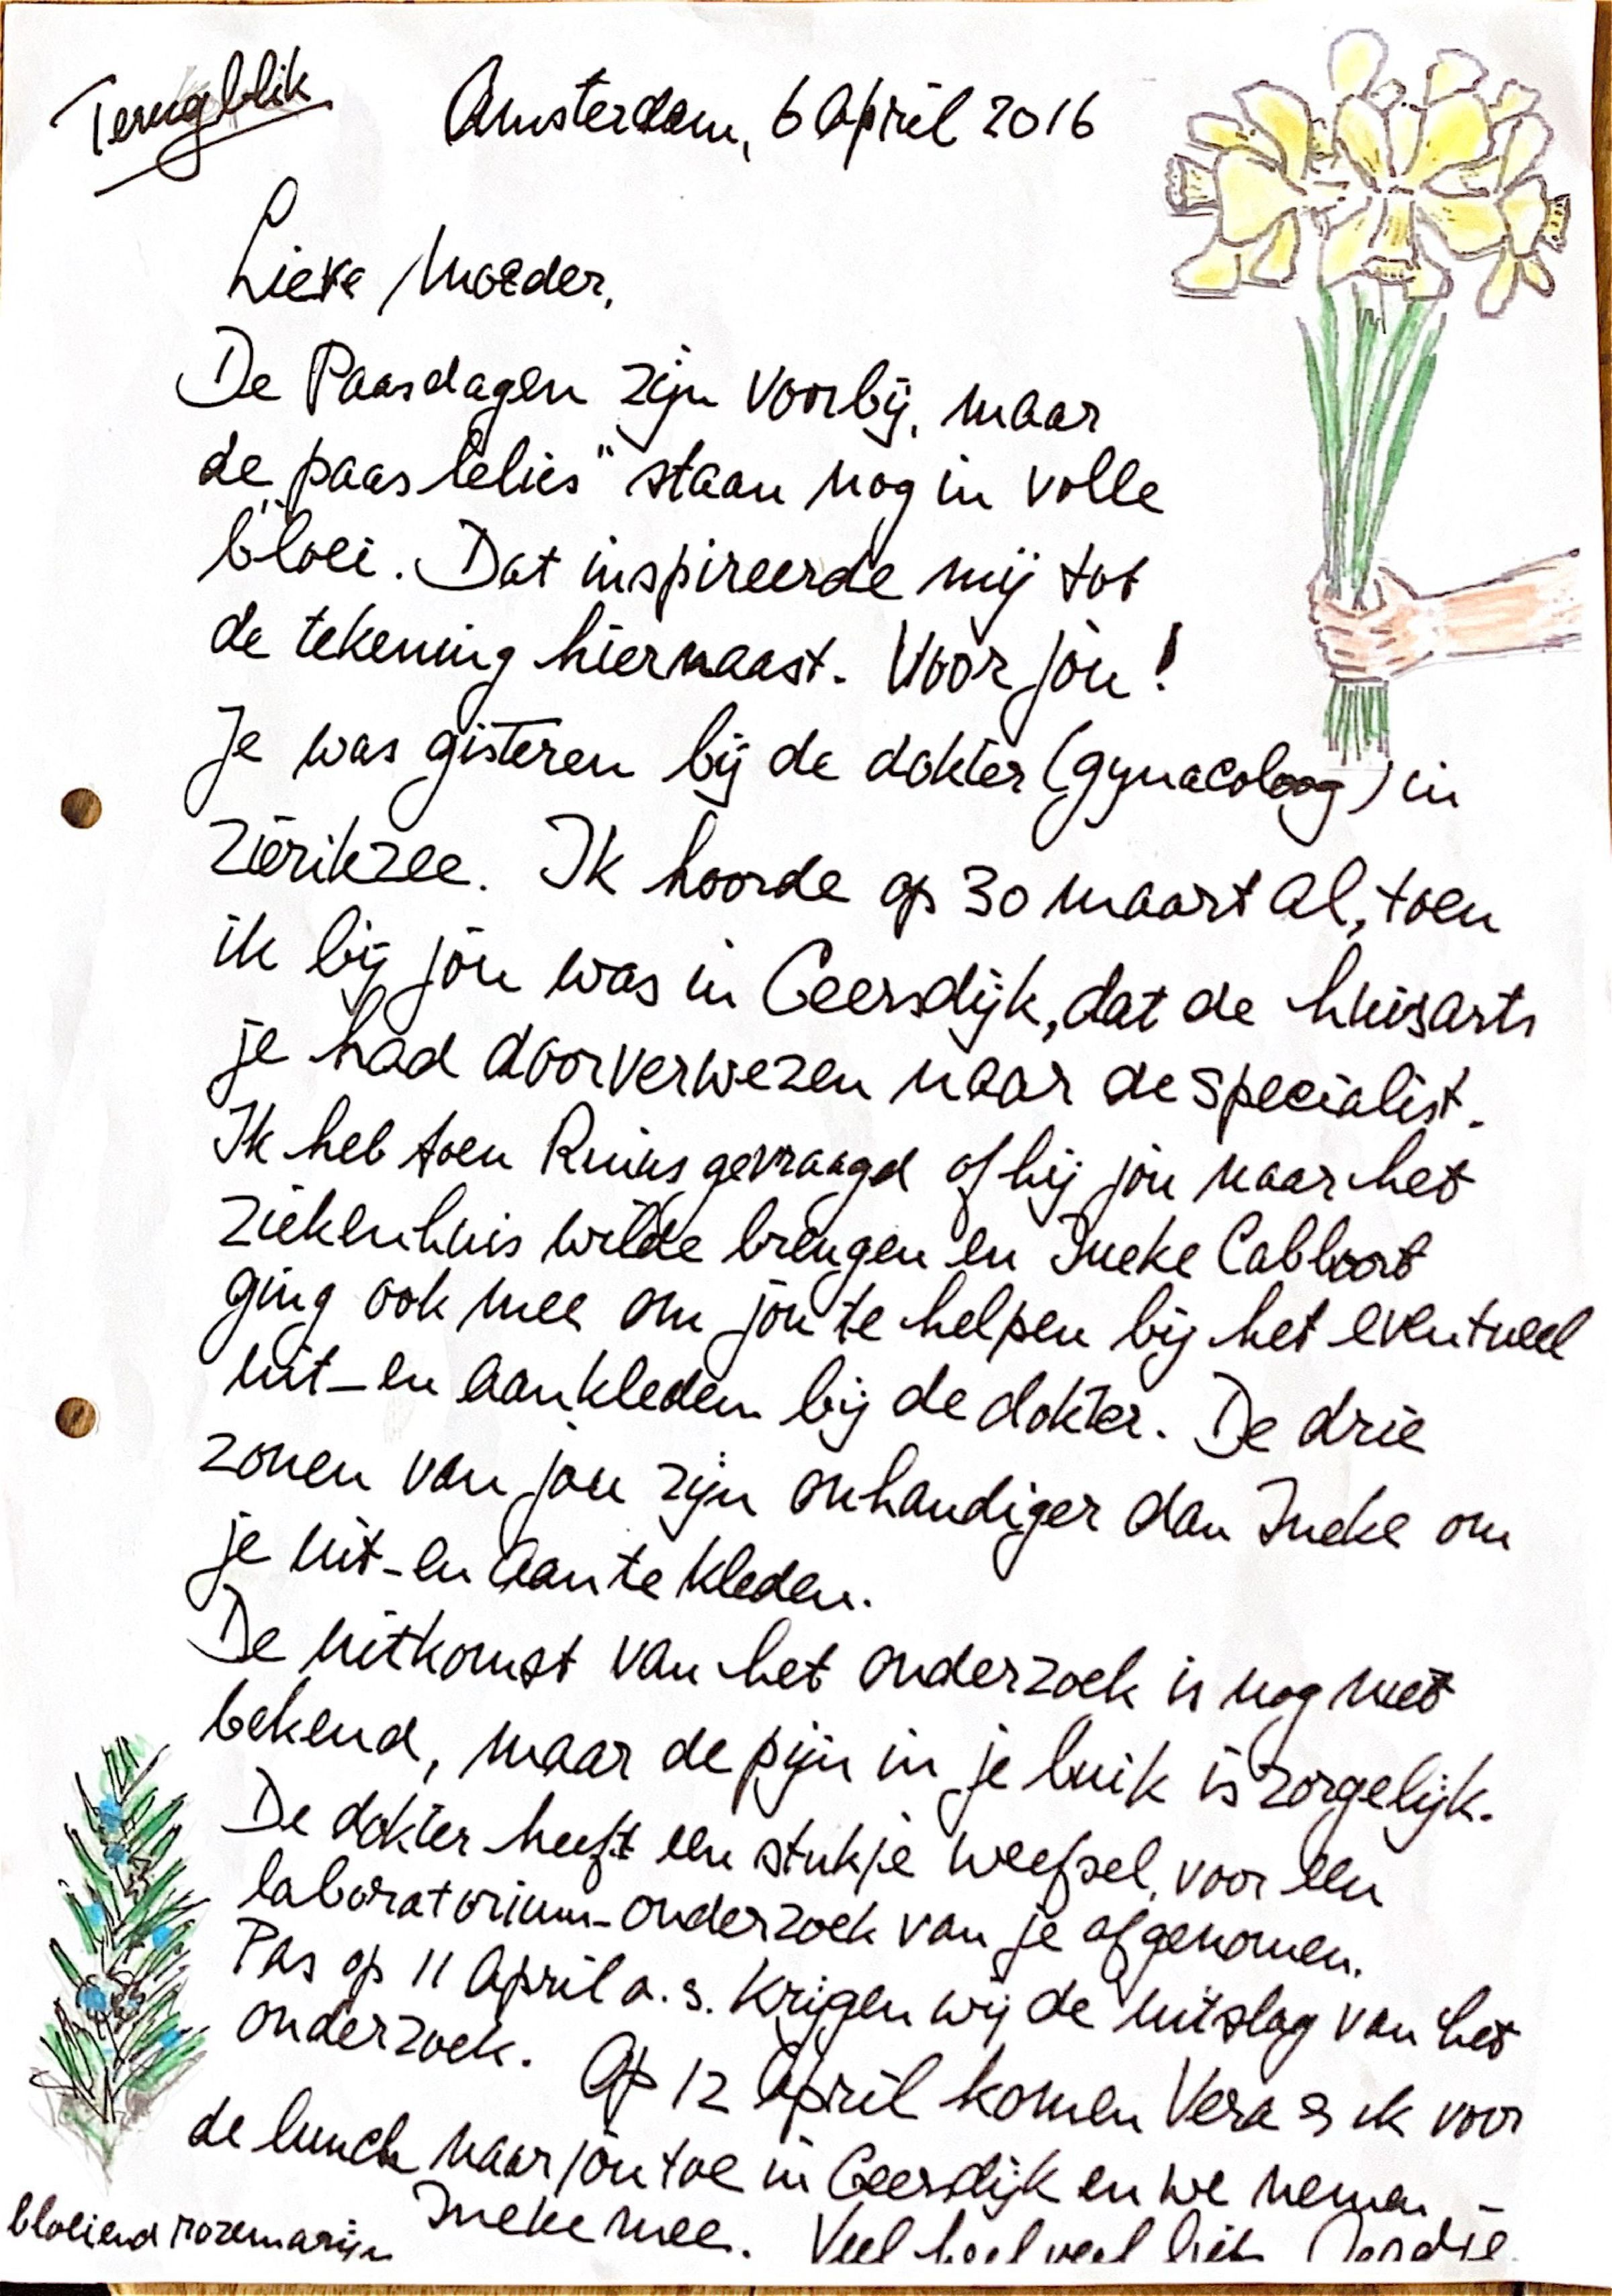 Terugblik
Amsterdam, 6 April 2016
Lieve Moeder,
De Paasdagen zijn voorbij, maar
de „paaslelies" staan nog in volle
bloei. Dat inspireerde mij tot
de tekening hiernaast. Voor jóu!
Je was gisteren bij de dokter (gynaecoloog) in
Zierikzee. Ik hoorde op 30 maart al, toen
ik bij jóu was in Geersdijk, dat de huisarts
je had doorverwezen naar de specialist.
Ik heb toen Rinus gevraagd of hij jóu naar het
ziekenhuis wilde brengen en Ineke
ging ook mee om jóu te helpen bij het eventueel
uit-en aankleden bij de dokter. De drie
zonen van jou zijn onhandiger dan Ineke om
je uit-en aan te kleden.
De uitkomst van het onderzoek is nog niet
bekend, maar de pijn in je buik is zorgelijk.
De dokter heeft een stukje weefsel, voor een
laboratorium-onderzoek van je afgenomen.
Pas op 11 April a.s. krijgen wij de uitslag van het
onderzoek. Op 12 April komen Vera & ik voor
de lunch naar jóu toe in Geersdijk en we nemen -
Ineke mee. Veel heel veel liefs
bloeiend rozemarijn